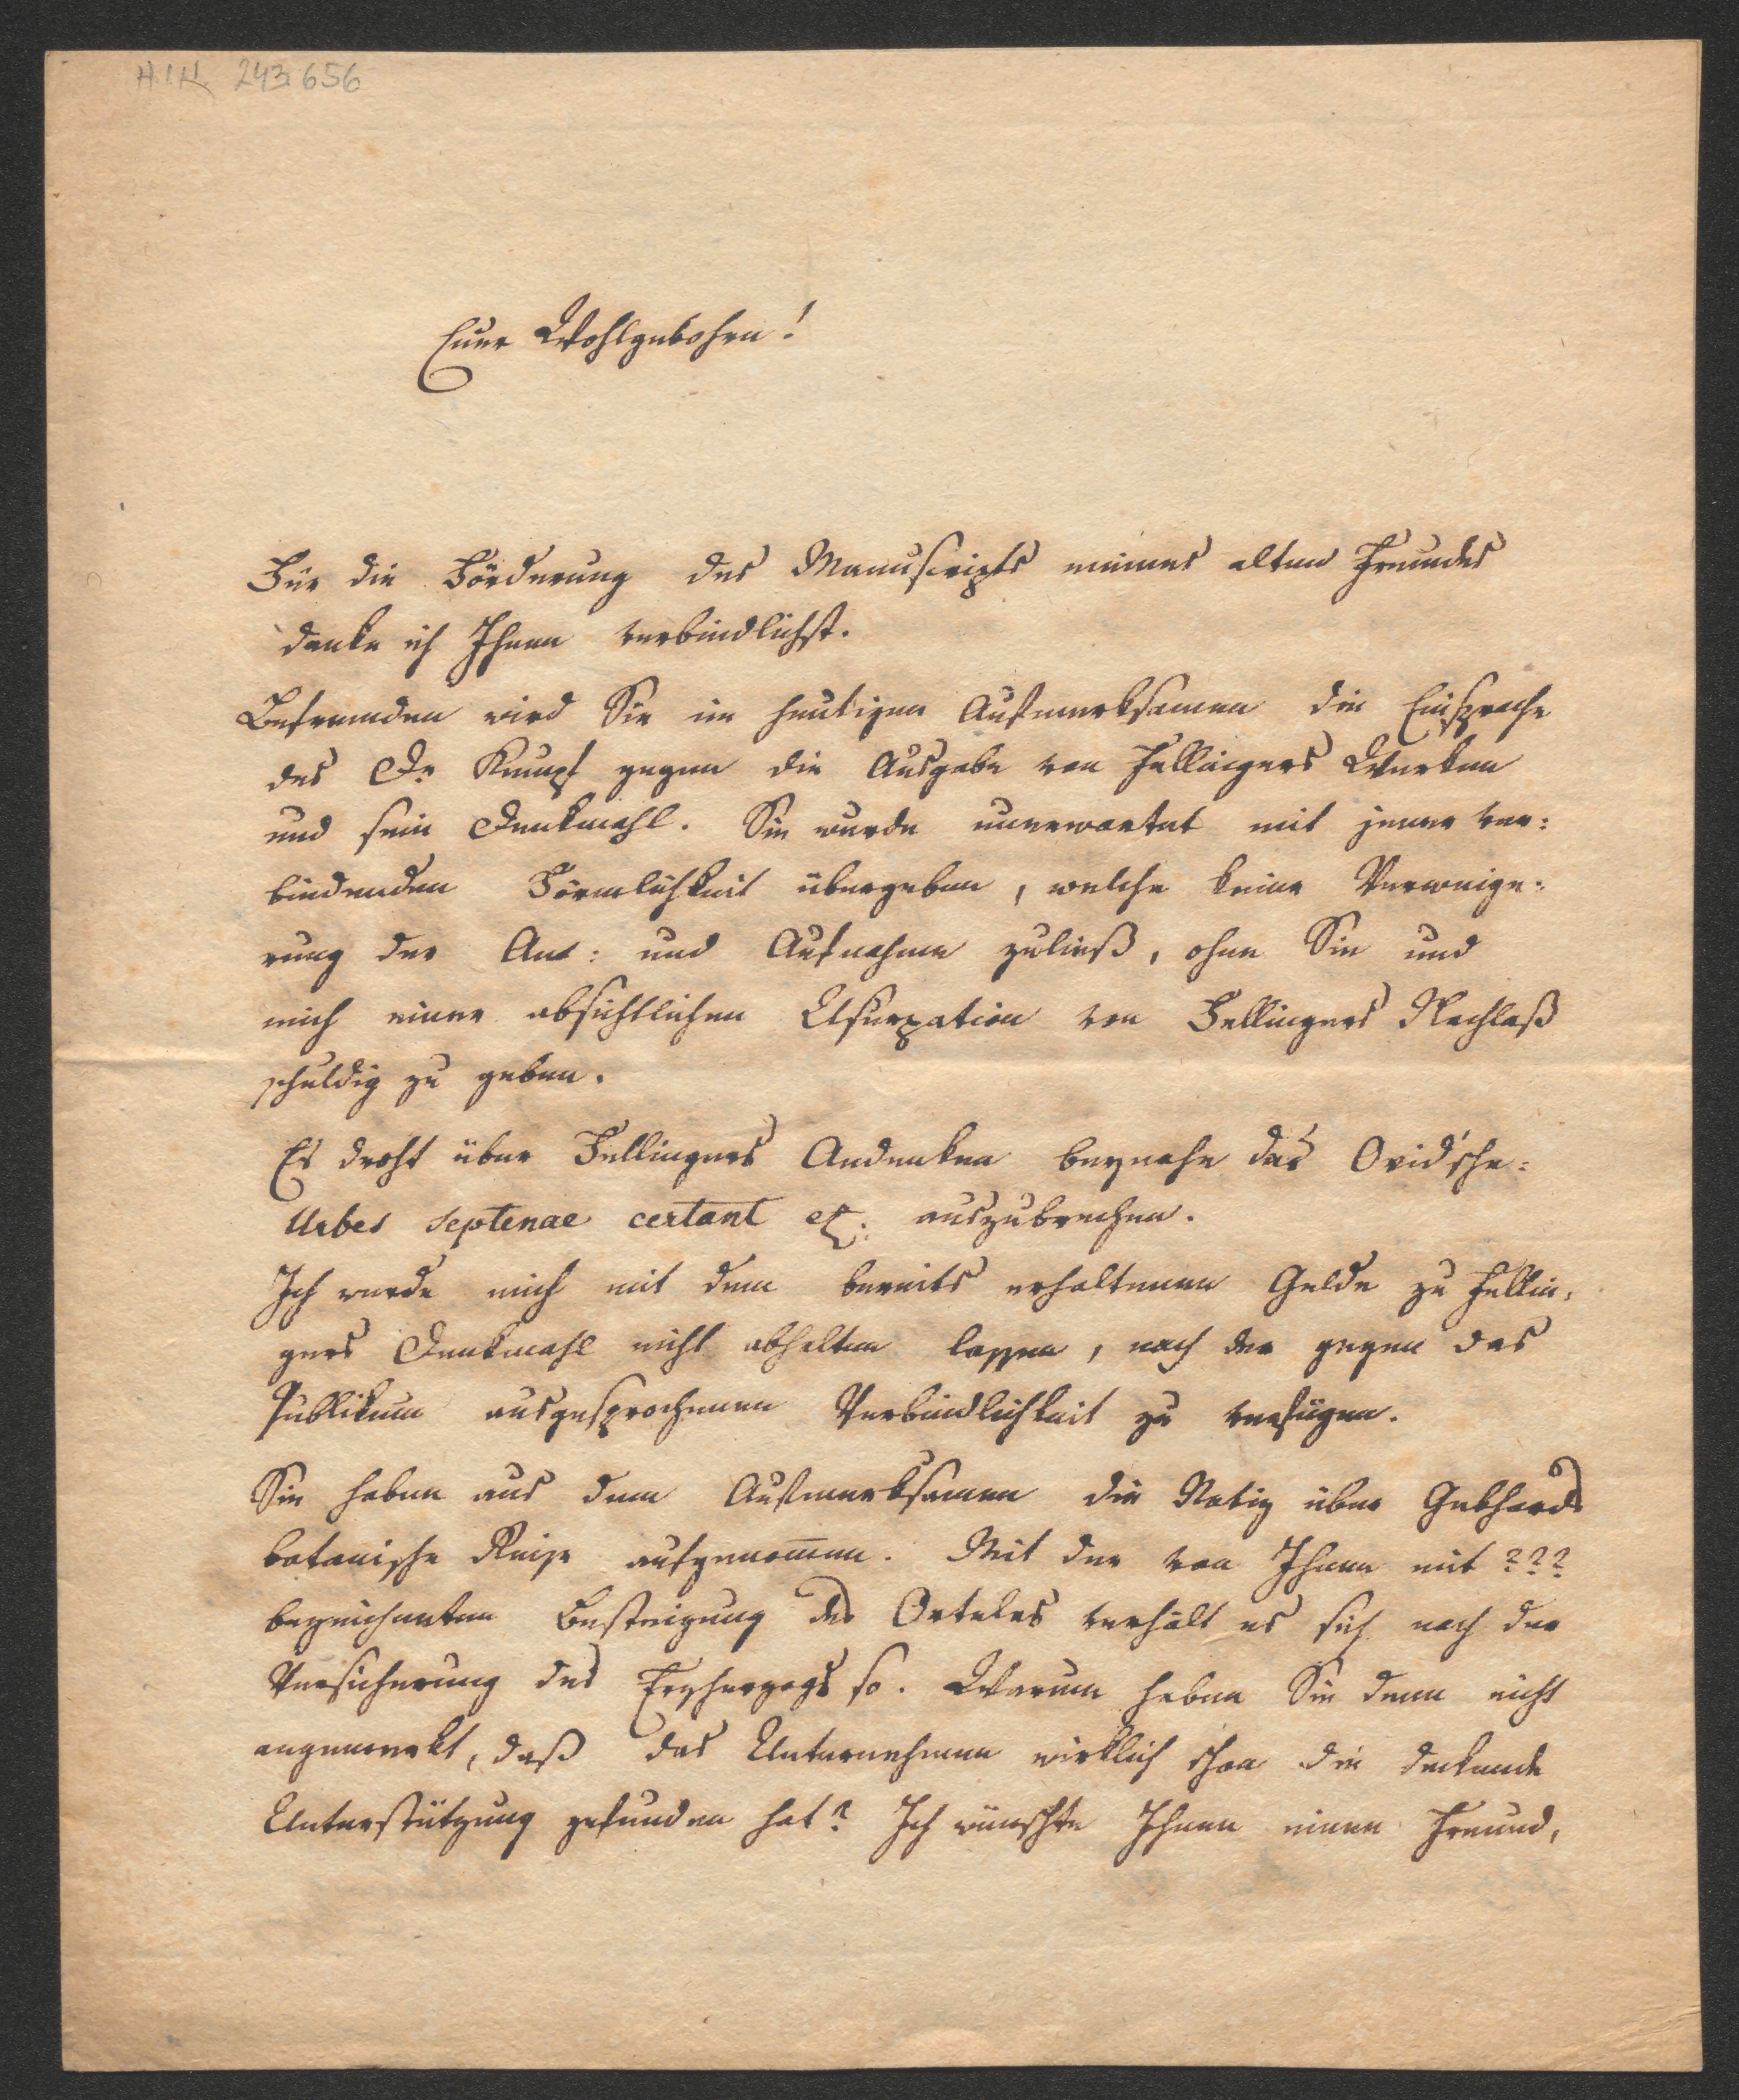 H.I.N. 243.656
Euer Wohlgebohrn!
Für die Förderung des Manuscripts meines alten Freundes
danke ich Ihnen verbindlichst.
Befremden wird Sie im heutigen Aufmerksamen die Einsprache
des Dr Kumpf gegen die Ausgabe von Fellingers Werken
und sein Denkmahl. Sie wurde unerwartet mit jener ver:
bindenden Förmlichkeit übergeben, welche keine Verweige:
rung der An: und Aufnahme zuließ, ohne Sie und
mich einer absichtlichen Usurpation von Fellingers Nachlaß
schuldig zu geben.
Es droht über Fellingers Andenken beynahe das Ovid'sche:
Urbes septenae certant etc: auszubrechen.
Ich werde mich mit dem bereits erhaltenen Gelde zu Fellin:
gers Denkmahl nicht abhalten lassen, nach der gegen das
Publikum ausgesprochenen Verbindlichkeit zu verfügen.
Sie haben aus dem Aufmerksamen die Notiz über Gebhards
botanische Reise aufgenom̅en. Mit der von Ihnen mit ???
bezeichneten Besteigung des Orteles verhält es sich nach der
Versicherung des Erzherzogs so. Warum haben Sie denn nicht
angemerkt, daß das Unternehmen wirklich schon die deckende
Unterstützung gefunden hat? Ich wünschte Ihnen einen Freund,